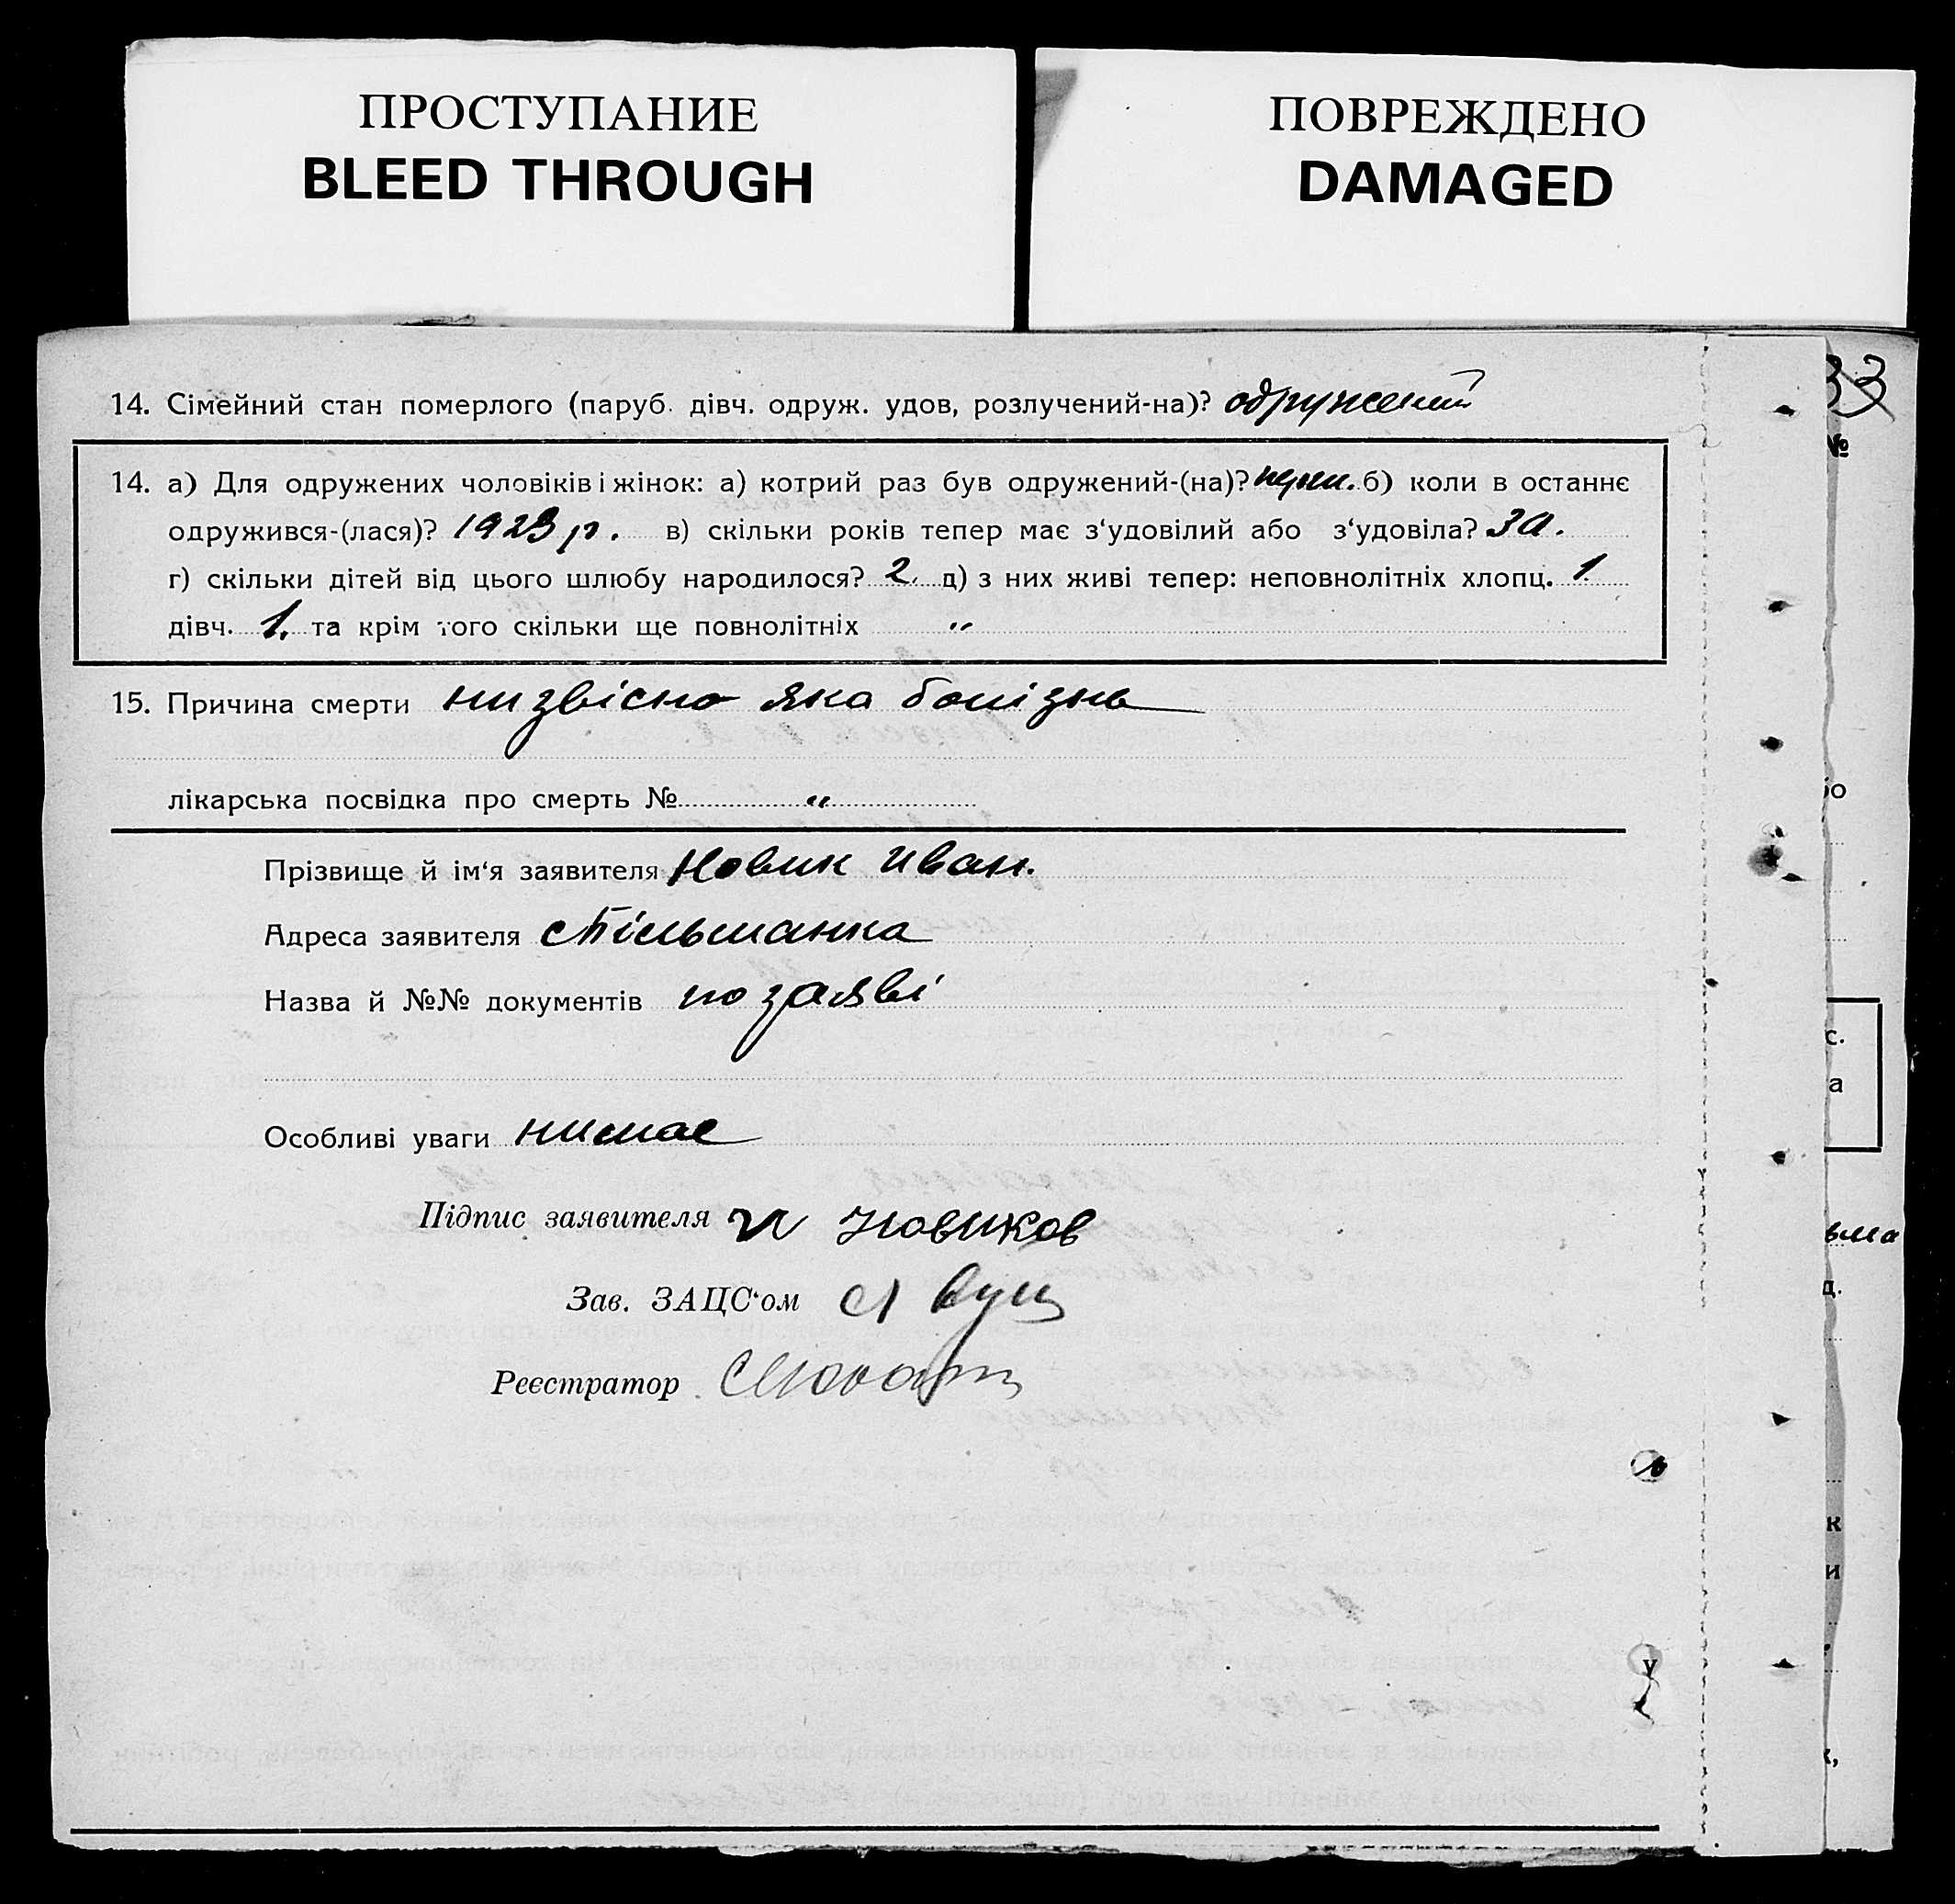 ПРОСТУПАНИЕ
BLEED THROUGH
ПОВРЕЖДЕНО
DAMAGED
33
14. Сімейний стан померлого (паруб. дівч. одруж. удов, розлучений-на)? одружений
№
14. а) Для одружених чоловіків і жінок: а) котрий раз був одружений-(на)? перш. б) коли в останнє
одружився-(лася)? 1923 р. в) скільки років тепер має з‘удовілий або з‘удовіла? 30.
г) скільки дітей від цього шлюбу народилося? 2. д) з них живі тепер: неповнолітніх хлопц. 1.
дівч. 1. та крім того скільки ще повнолітніх „
15. Причина смерти низвісно яка болізнь
лікарська посвідка про смерть № „
Прізвище й ім‘я заявителя Новик Иван.
Адреса заявителя Вільшанка
Назва й №№ документів по заяві
с.
а
Особливі уваги нимає
Підпис заявителя И Новиков
ьма
Зав. ЗАЦС‘ом
д.
Реєстратор
к
и
у